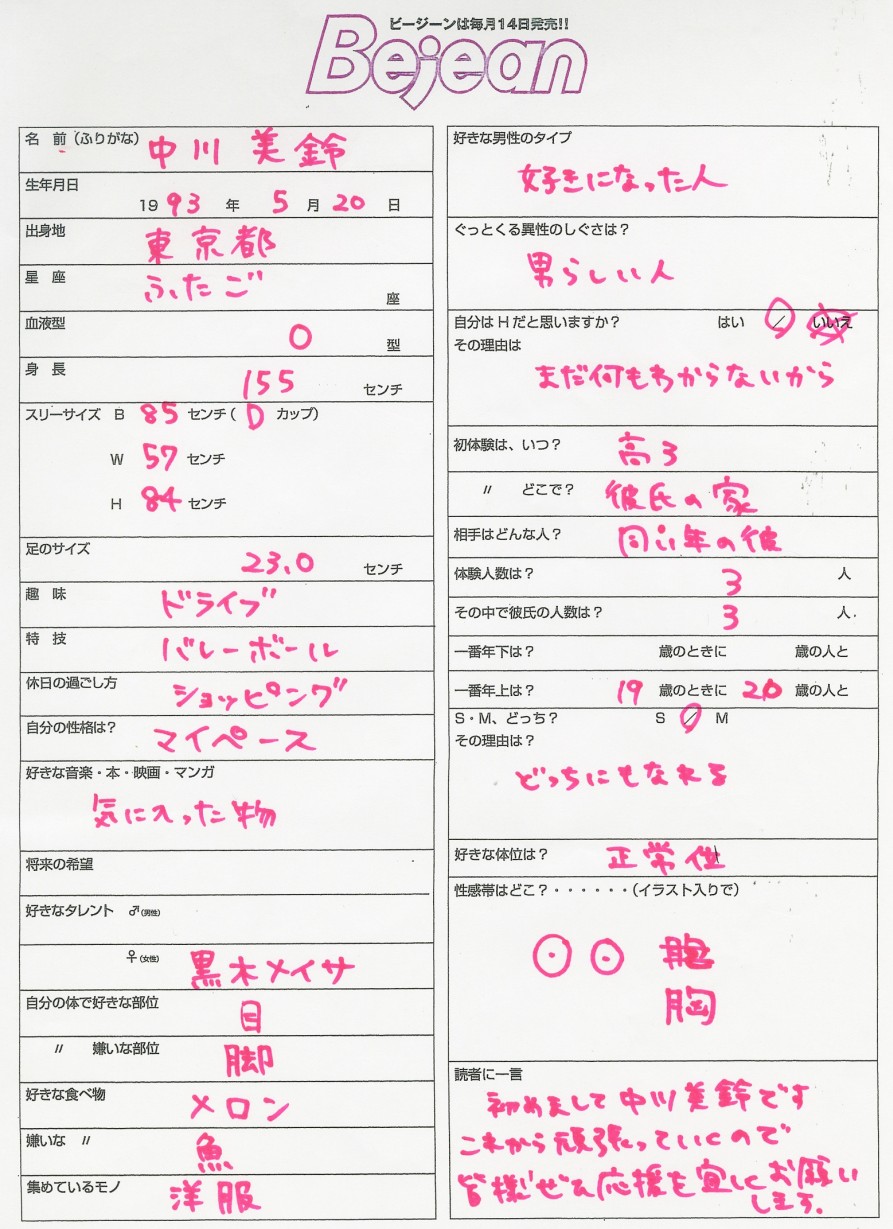 ビージーンは毎月14日発売!!
Bejean
名 前(ふりがな) 中川 美鈴
生年月日
19 93 年 5 月 20 日
出身地 東京都
星 座 ふたご 座
血液型 O 型
身 長 155 センチ
スリーサイズ B 85 センチ( D カップ)
W 57 センチ
H 84 センチ
足のサイズ 23.0 センチ
趣 味 ドライブ
特 技 バレーボール
休日の過ごし方 ショッピング
自分の性格は? マイペース
好きな音楽・本・映画・マンガ
気に入った物
将来の希望
好きなタレント ♂(男性)
♀(女性) 黒木メイサ
自分の体で好きな部位 目
〃 嫌いな部位 脚
好きな食べ物 メロン
嫌いな 〃 魚
集めているモノ 洋服
好きな男性のタイプ
好きになった人
ぐっとくる異性のしぐさは?
男らしい人
自分はHだと思いますか? はい / いいえ
その理由は
まだ何もわからないから
初体験は、いつ? 高3
〃 どこで? 彼氏の家
相手はどんな人? 同い年の彼
体験人数は? 3 人
その中で彼氏の人数は? 3 人.
一番年下は? 歳のときに 歳の人と
一番年上は? 19 歳のときに 20 歳の人と
S・M、どっち? S / M
その理由は?
どっちにもなれる
好きな体位は? 正常位
性感帯はどこ?・・・・・・(イラスト入りで)
胸
読者に一言
初めまして中川美鈴です
これから頑張っていくので
皆様ぜひ応援を宜しくお願い
します.